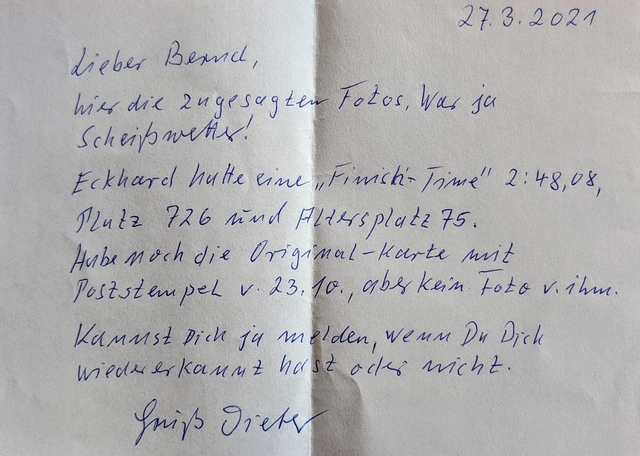 27.3.2021
Lieber Bernd,
hier die zugesagten Fotos. War ja
Scheißwetter!
Eckhard hatte eine „Finish-Time" 2:48,08,
Platz 726 und Altersplatz 75.
Habe noch die Original-Karte mit
Poststempel v. 23.10., aber kein Foto v. ihm.
Kannst Dich ja melden, wenn Du Dich
wiedererkannt hast oder nicht.
Gruß Dieter